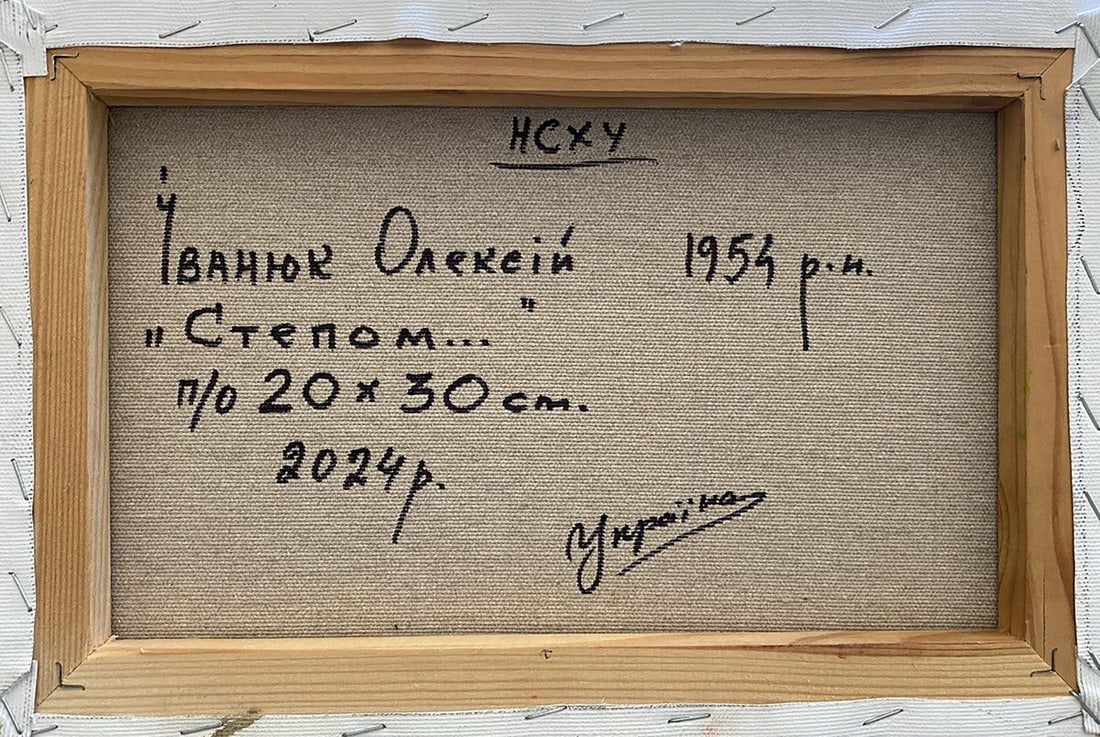 НСХУ
Іванюк Олексій 1954 р.н.
„Степом..."
п/о 20 х 30 см.
2024 р.
Україна